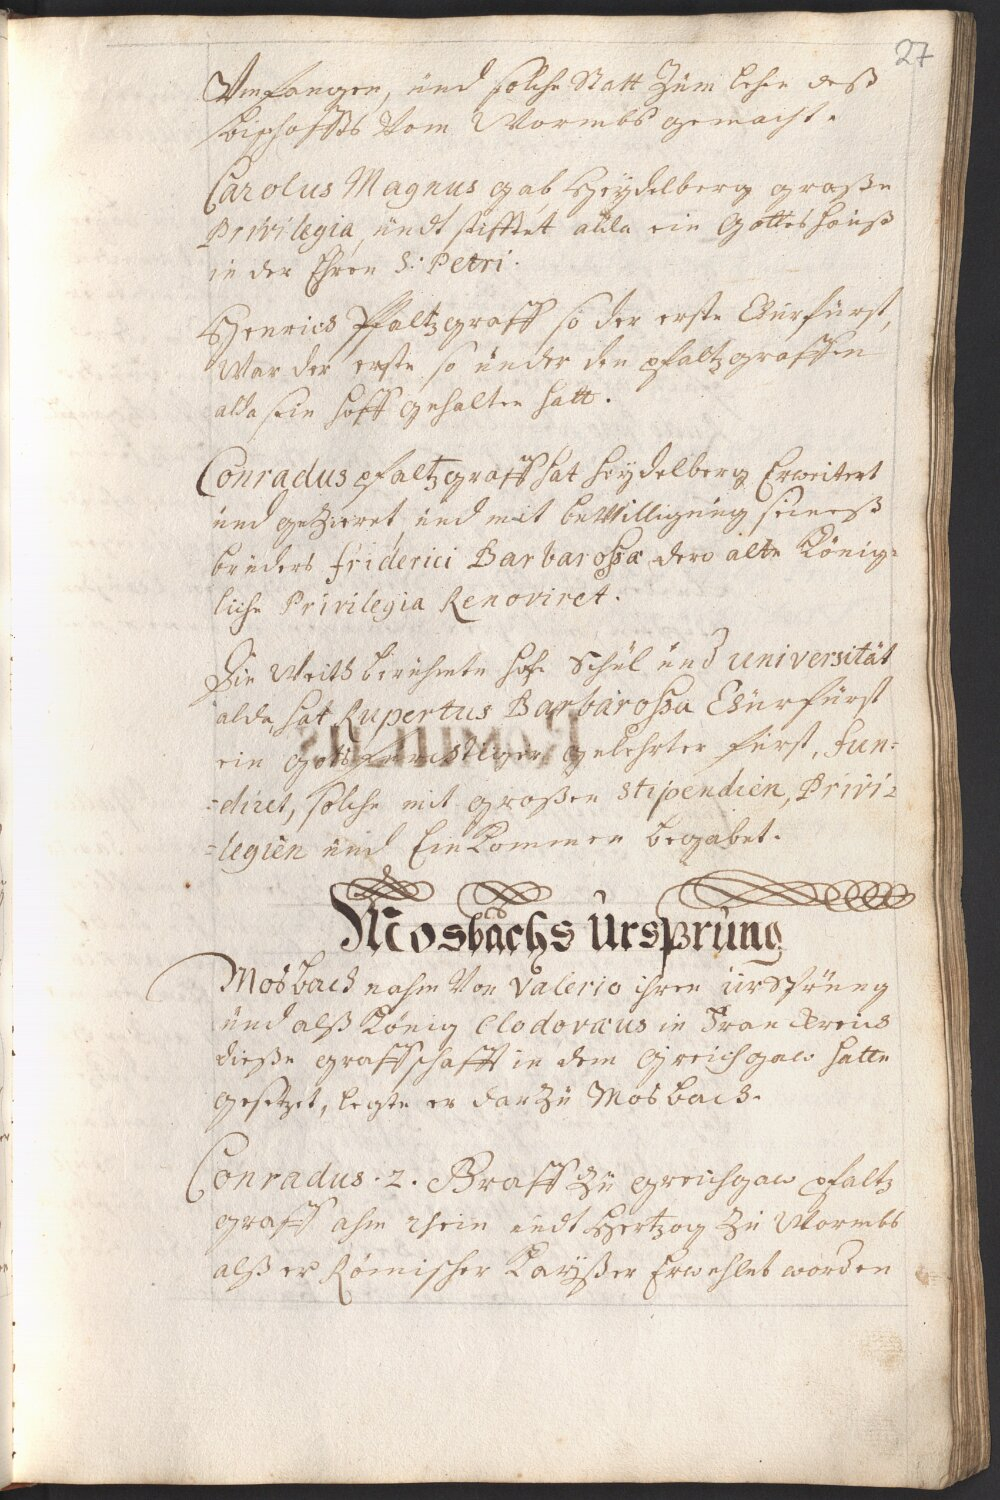 27
Umfangen, und solche Statt Zum lehen deß
bischoffs Vom Wormbs gemacht.
Carolus Magnus gab Heydelberg große
Privilegia, undt stifftet alda ein Gotteshauß
in der Ehren S: Petri.
Henricus Pfaltzgraff so der erste Churfürst,
War der erste so under den pfaltzgraffen
alda sein hoff gehalten hatt.
Conradus pfaltzgraff hat heydelberg Erweitert
und gezieret und mit beWilligung seineß
bruders friderici Barbarossæ dero alte König-
liche Privilegia Renoviret.
Die Weith berühmte hohe Schul und universität
alda, hat Rupertus Barbarossa Churfürst
ein gelehrter fürst, fun-
-diret, solche mit großen stipendien, Privi-
-legien und Einkommen begabet.
Mosbachs Ursprung
Mosbach nahm Von Valerio ihren urSprung
und alß König Clodovæus in Franckreich
dieße graffschafft in dem Greichgaw hatte
gesetzet, legte er darzu Mosbach.
Conradus. 2. Graff Zu greichgaw pfaltz
graff ahm rhein undt Hertzog Zu Wormbs
alß er Römischer Kayßer Erwehlet worden